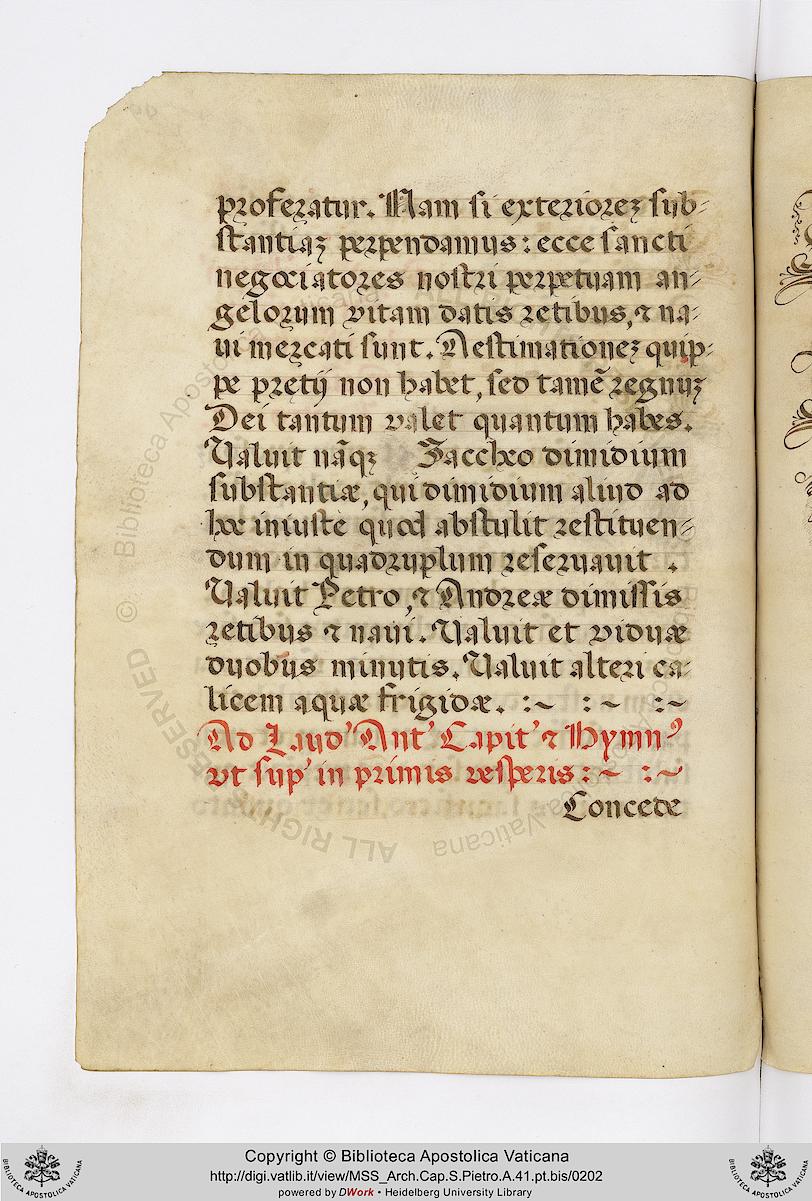 proferatur. Nam si exteriorez sub-
stantiaz perpendamus: ecce sancti
negociatores nostri perpetuam an-
gelorum vitam datis retibus, & na-
ui mercati sunt. Aestimationez quip-
pe pretij non habet, sed tamē regnuz
Dei tantum valet quantum habes.
Valuit nāqz Zacchæo dimidium
substantiæ, qui dimidium aliud ad
hoc iniuste quod abstulit restituen-
dum in quadruplum reseruauit .
Valuit Petro, & Andreæ dimissis
retibus & naui. Valuit et viduæ
duobus minutis. Valuit alteri ca-
licem aquæ frigidæ. :~ :~ :~
Ad Laud' Ant' Capit' & Hymn⁹
vt sup' in primis vesperis :~ :~
Concede
© Biblioteca Apostolica Vaticana
ALL RIGHTS RESERVED
Copyright © Biblioteca Apostolica Vaticana
http://digi.vatlib.it/view/MSS_Arch.Cap.S.Pietro.A.41.pt.bis/0202
powered by DWork • Heidelberg University Library